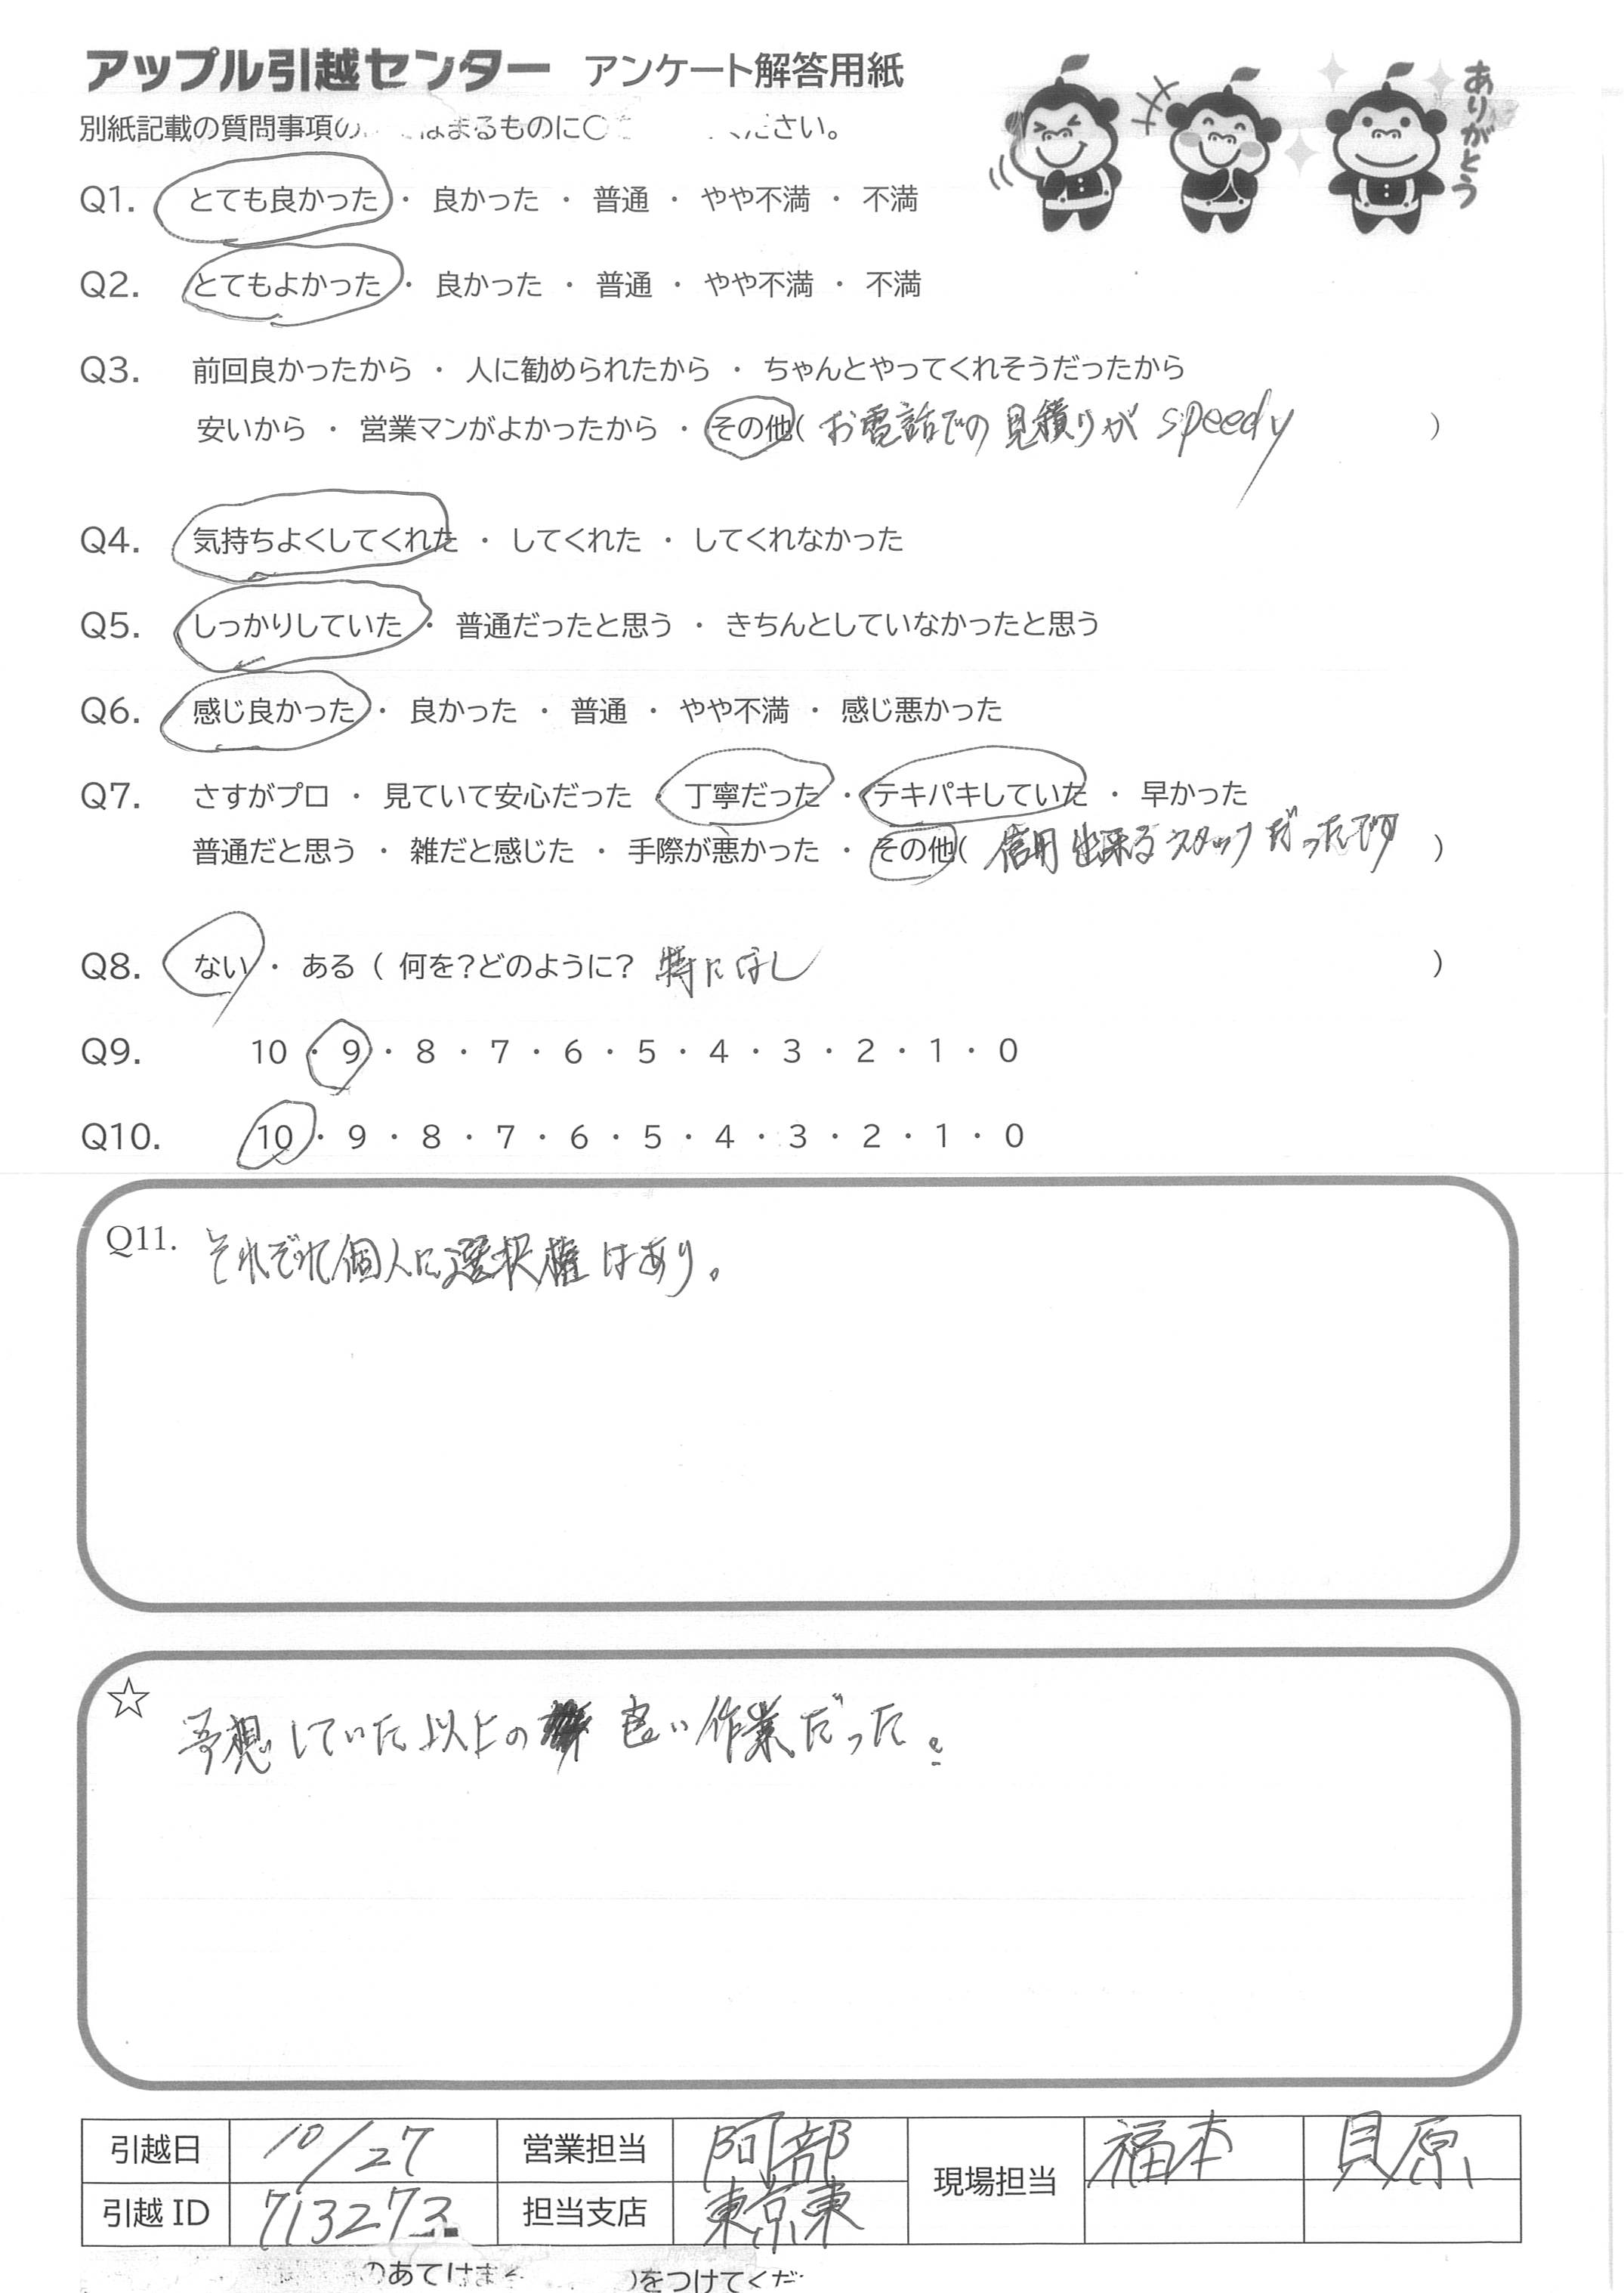 アップル引越センター アンケート解答用紙
別紙記載の質問事項の はまるものに○ ください。
ありがとう
Q1. とても良かった ・ 良かった ・ 普通 ・ やや不満 ・ 不満
Q2. とてもよかった ・ 良かった ・ 普通 ・ やや不満 ・ 不満
Q3. 前回良かったから ・ 人に勧められたから ・ ちゃんとやってくれそうだったから
安いから ・ 営業マンがよかったから ・ その他( お電話での見積りが speedy )
Q4. 気持ちよくしてくれた ・ してくれた ・ してくれなかった
Q5. しっかりしていた ・ 普通だったと思う ・ きちんとしていなかったと思う
Q6. 感じ良かった ・ 良かった ・ 普通 ・ やや不満 ・ 感じ悪かった
Q7. さすがプロ ・ 見ていて安心だった ・ 丁寧だった ・ テキパキしていた ・ 早かった
普通だと思う ・ 雑だと感じた ・ 手際が悪かった ・ その他( 信用出来るスタッフだったです )
Q8. ない ・ ある ( 何を?どのように? 特になし )
Q9. 10 ・ 9 ・ 8 ・ 7 ・ 6 ・ 5 ・ 4 ・ 3 ・ 2 ・ 1 ・ 0
Q10. 10 ・ 9 ・ 8 ・ 7 ・ 6 ・ 5 ・ 4 ・ 3 ・ 2 ・ 1 ・ 0
Q11. それぞれ個人に選択権はあり。
☆ 予想していた以上の良い作業だった。
引越日 10/27 営業担当 阿部 現場担当 福本 貝原
引越ID 713273 担当支店 東京東
のあてはま )をつけてくだ